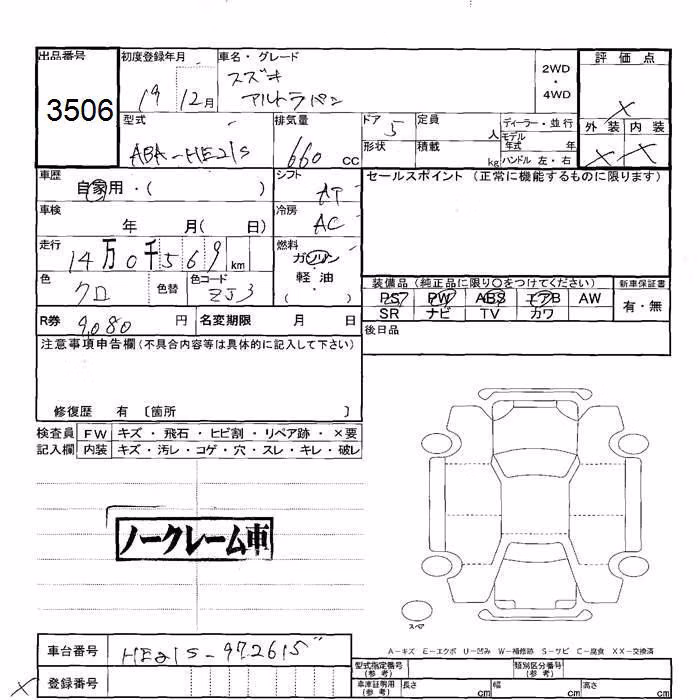 出品番号
3506
初度登録年月
19 12月
車名・グレード
スズキ
アルトラパン
2WD
・
4WD
評価点
X
外装 内装
X X
型式
ABA-HE21S
排気量
660 cc
ドア
5
形状
定員
人
積載
kg
ディーラー・並行
モデル
年式 年
ハンドル 左・右
車歴
自家用・( )
シフト
AT
セールスポイント (正常に機能するものに限ります)
車検
年 月( 日)
冷房
AC
走行
14万0千569 km
燃料
ガソリン
・
軽油
( )
色
クロ
色替
色コード
ZJ3
装備品 (純正品に限り○をつけてください)
PS PW ABS エアB AW
SR ナビ TV カワ
新車保証書
有・無
R券 9,080 円
名変期限 月 日
後日品
注意事項申告欄(不具合内容等は具体的に記入して下さい)
修復歴 有 〔箇所 〕
検査員
記入欄
FW キズ・飛石・ヒビ割・リペア跡・×要
内装 キズ・汚レ・コゲ・穴・スレ・キレ・破レ
ノークレーム車
スペア
A-キズ E-エクボ U-凹み W-補修跡 S-サビ C-腐食 XX-交換済
車台番号 HE21S-972615
X
登録番号
型式指定番号
(参考)
類別区分番号
(参考)
車庫証明用
(参考)
長さ cm 幅 cm 高さ cm